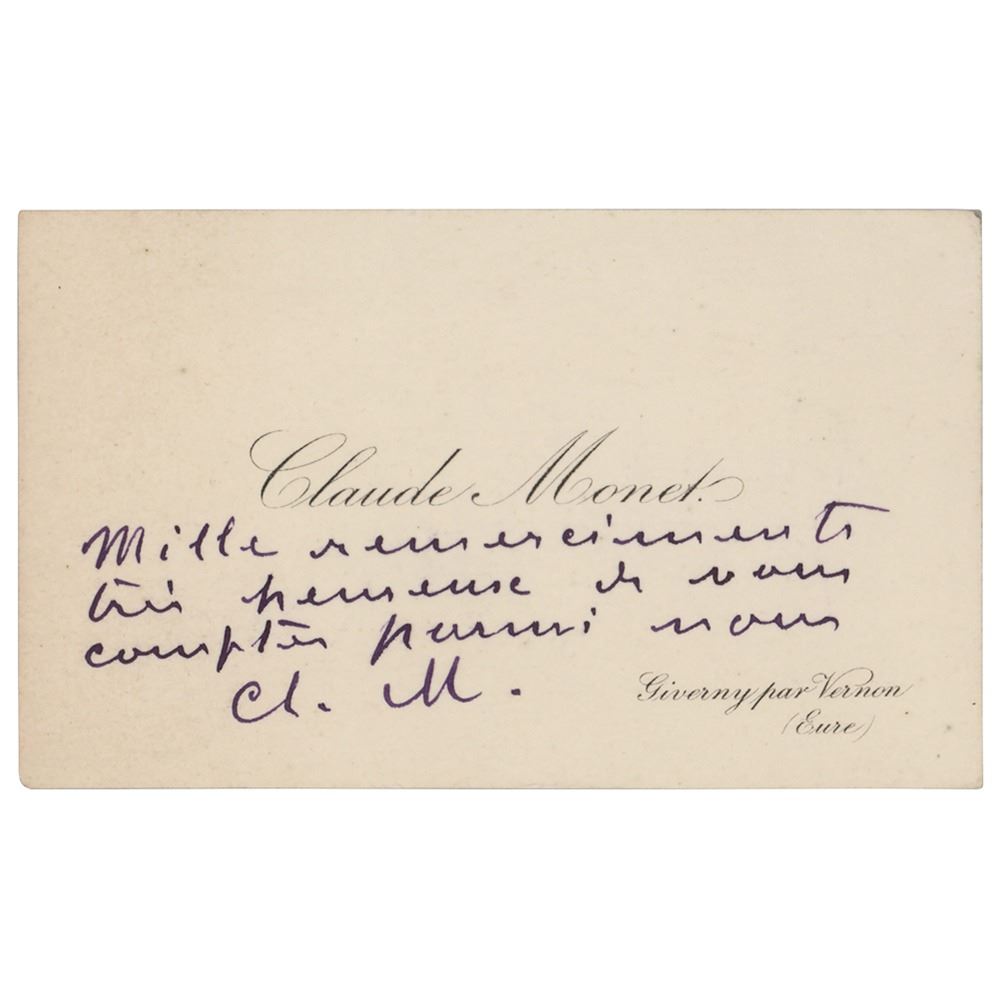 Claude Monet.
Mille remerciements
très heureuse de vous
compter parmi nous
Cl. M.
Giverny par Vernon
(Eure)